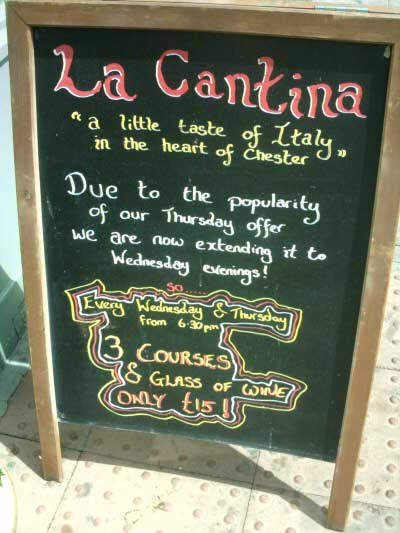 La Cantina
"a little taste of Italy
in the heart of Chester"
Due to the popularity
of our Thursday offer
we are now extending it to
Wednesday evenings!
SO.....
Every Wednesday & Thursday
from 6.30pm
3 COURSES
& GLASS OF WINE
ONLY £15!